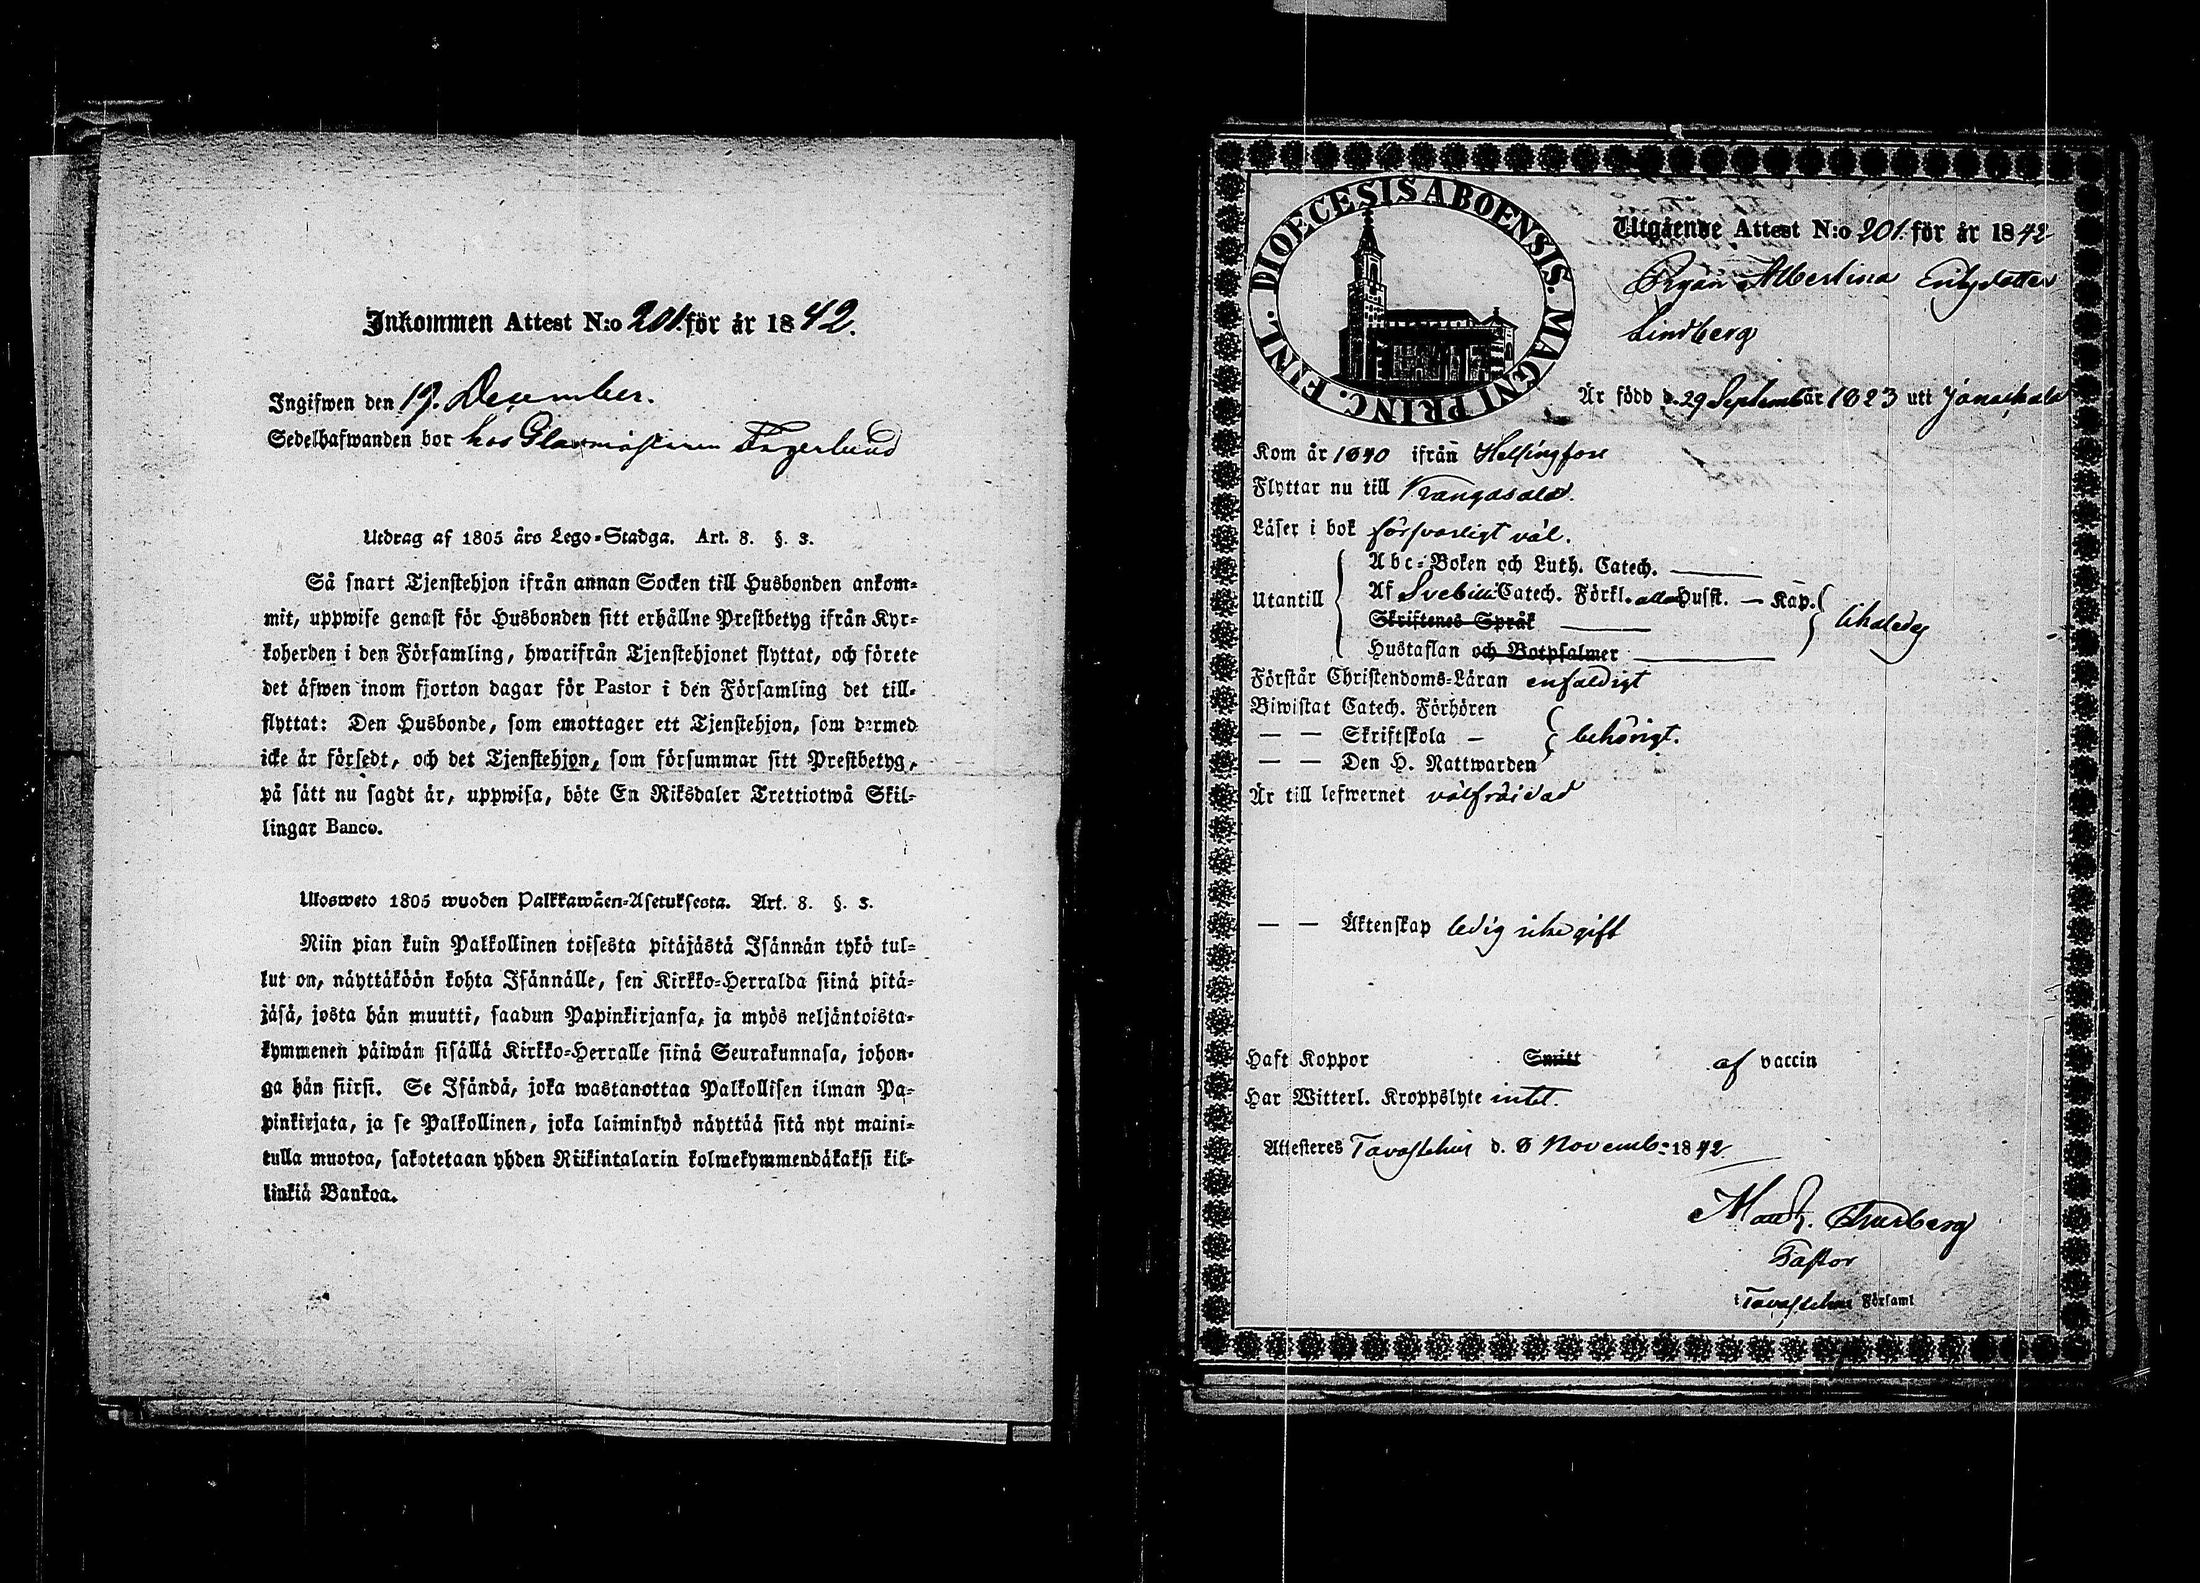 Inkommen Attest N:o 201. för år 1842.
Ingifwen den 19. December.
Sedelhafwanden bor hos Glasmästaren Fagerlund
Utdrag af 1805 års Lego-Stadga. Art. 8. §. 3.
Så snart Tjenstehjon ifrån annan Socken till Husbonden ankom-
mit, uppwise genast för Husbonden sitt erhållne Prestbetyg ifrån Kyr-
koherden i den Församling, hwarifrån Tjenstehjonet flyttat, och förete
det äfwen inom fjorton dagar för Pastor i den Församling det till-
flyttat: Den Husbonde, som emottager ett Tjenstehjon, som dermed
icke är försedt, och det Tjenstehjon, som försummar sitt Prestbetyg,
på sätt nu sagdt är, uppwisa, böte En Riksdaler Trettiotwå Skil-
lingar Banco.
Ulosweto 1805 wuoden Palkkawäen-Asetuksesta. Art. 8. §. 3.
Niin pian kuin Palkollinen toisesta pitäjästä Isännän tykö tul-
lut on, näyttäköön kohta Isännälle, sen Kirkko-Herralda siinä pitä-
jäsä, josta hän muutti, saadun Papinkirjansa, ja myös neljäntoista-
kymmenen päiwän sisällä Kirkko-Herralle siinä Seurakunnasa, johon-
ga hän siirsi. Se Isändä, joka wastanottaa Palkollisen ilman Pa-
pinkirjata, ja se Palkollinen, joka laiminlyö näyttää sitä nyt maini-
tulla muotoa, sakotetaan yhden Riikintalarin kolmekymmendäkaksi kil-
linkiä Bankoa.
DIOECESIS ABOENSIS. MAGNI PRINC. FINL.
Utgående Attest N:o 201. för år 1842
Pigan Albertina Eriksdotter
Lindberg
Är född d. 29 Septemb år 1823 uti Janakkala
Kom år 1840 ifrån Helsingfors
Flyttar nu till Kangasala.
Läser i bok försvarligt väl.
Utantill
Abc-Boken och Luth. Catech.
Af Svebilii Catech. Förkl. alla Hufst. — Kap.
Skriftenes Språk
Hustaflan och Botpsalmer
Förstår Christendoms-Läran enfaldigt
Biwistat Catech. Förhören
— — Skriftskola — behörigt.
— — Den H. Nattwarden
Är till lefwernet välfräjdad
— — Äktenskap ledig icke gift
Haft Koppor Smitt af vaccin
Har Witterl. Kroppslyte intet.
Attesteres Tavastehus d. 8 Novemb: 1842
Thurberg
Pastor
i Tavastehus Församl